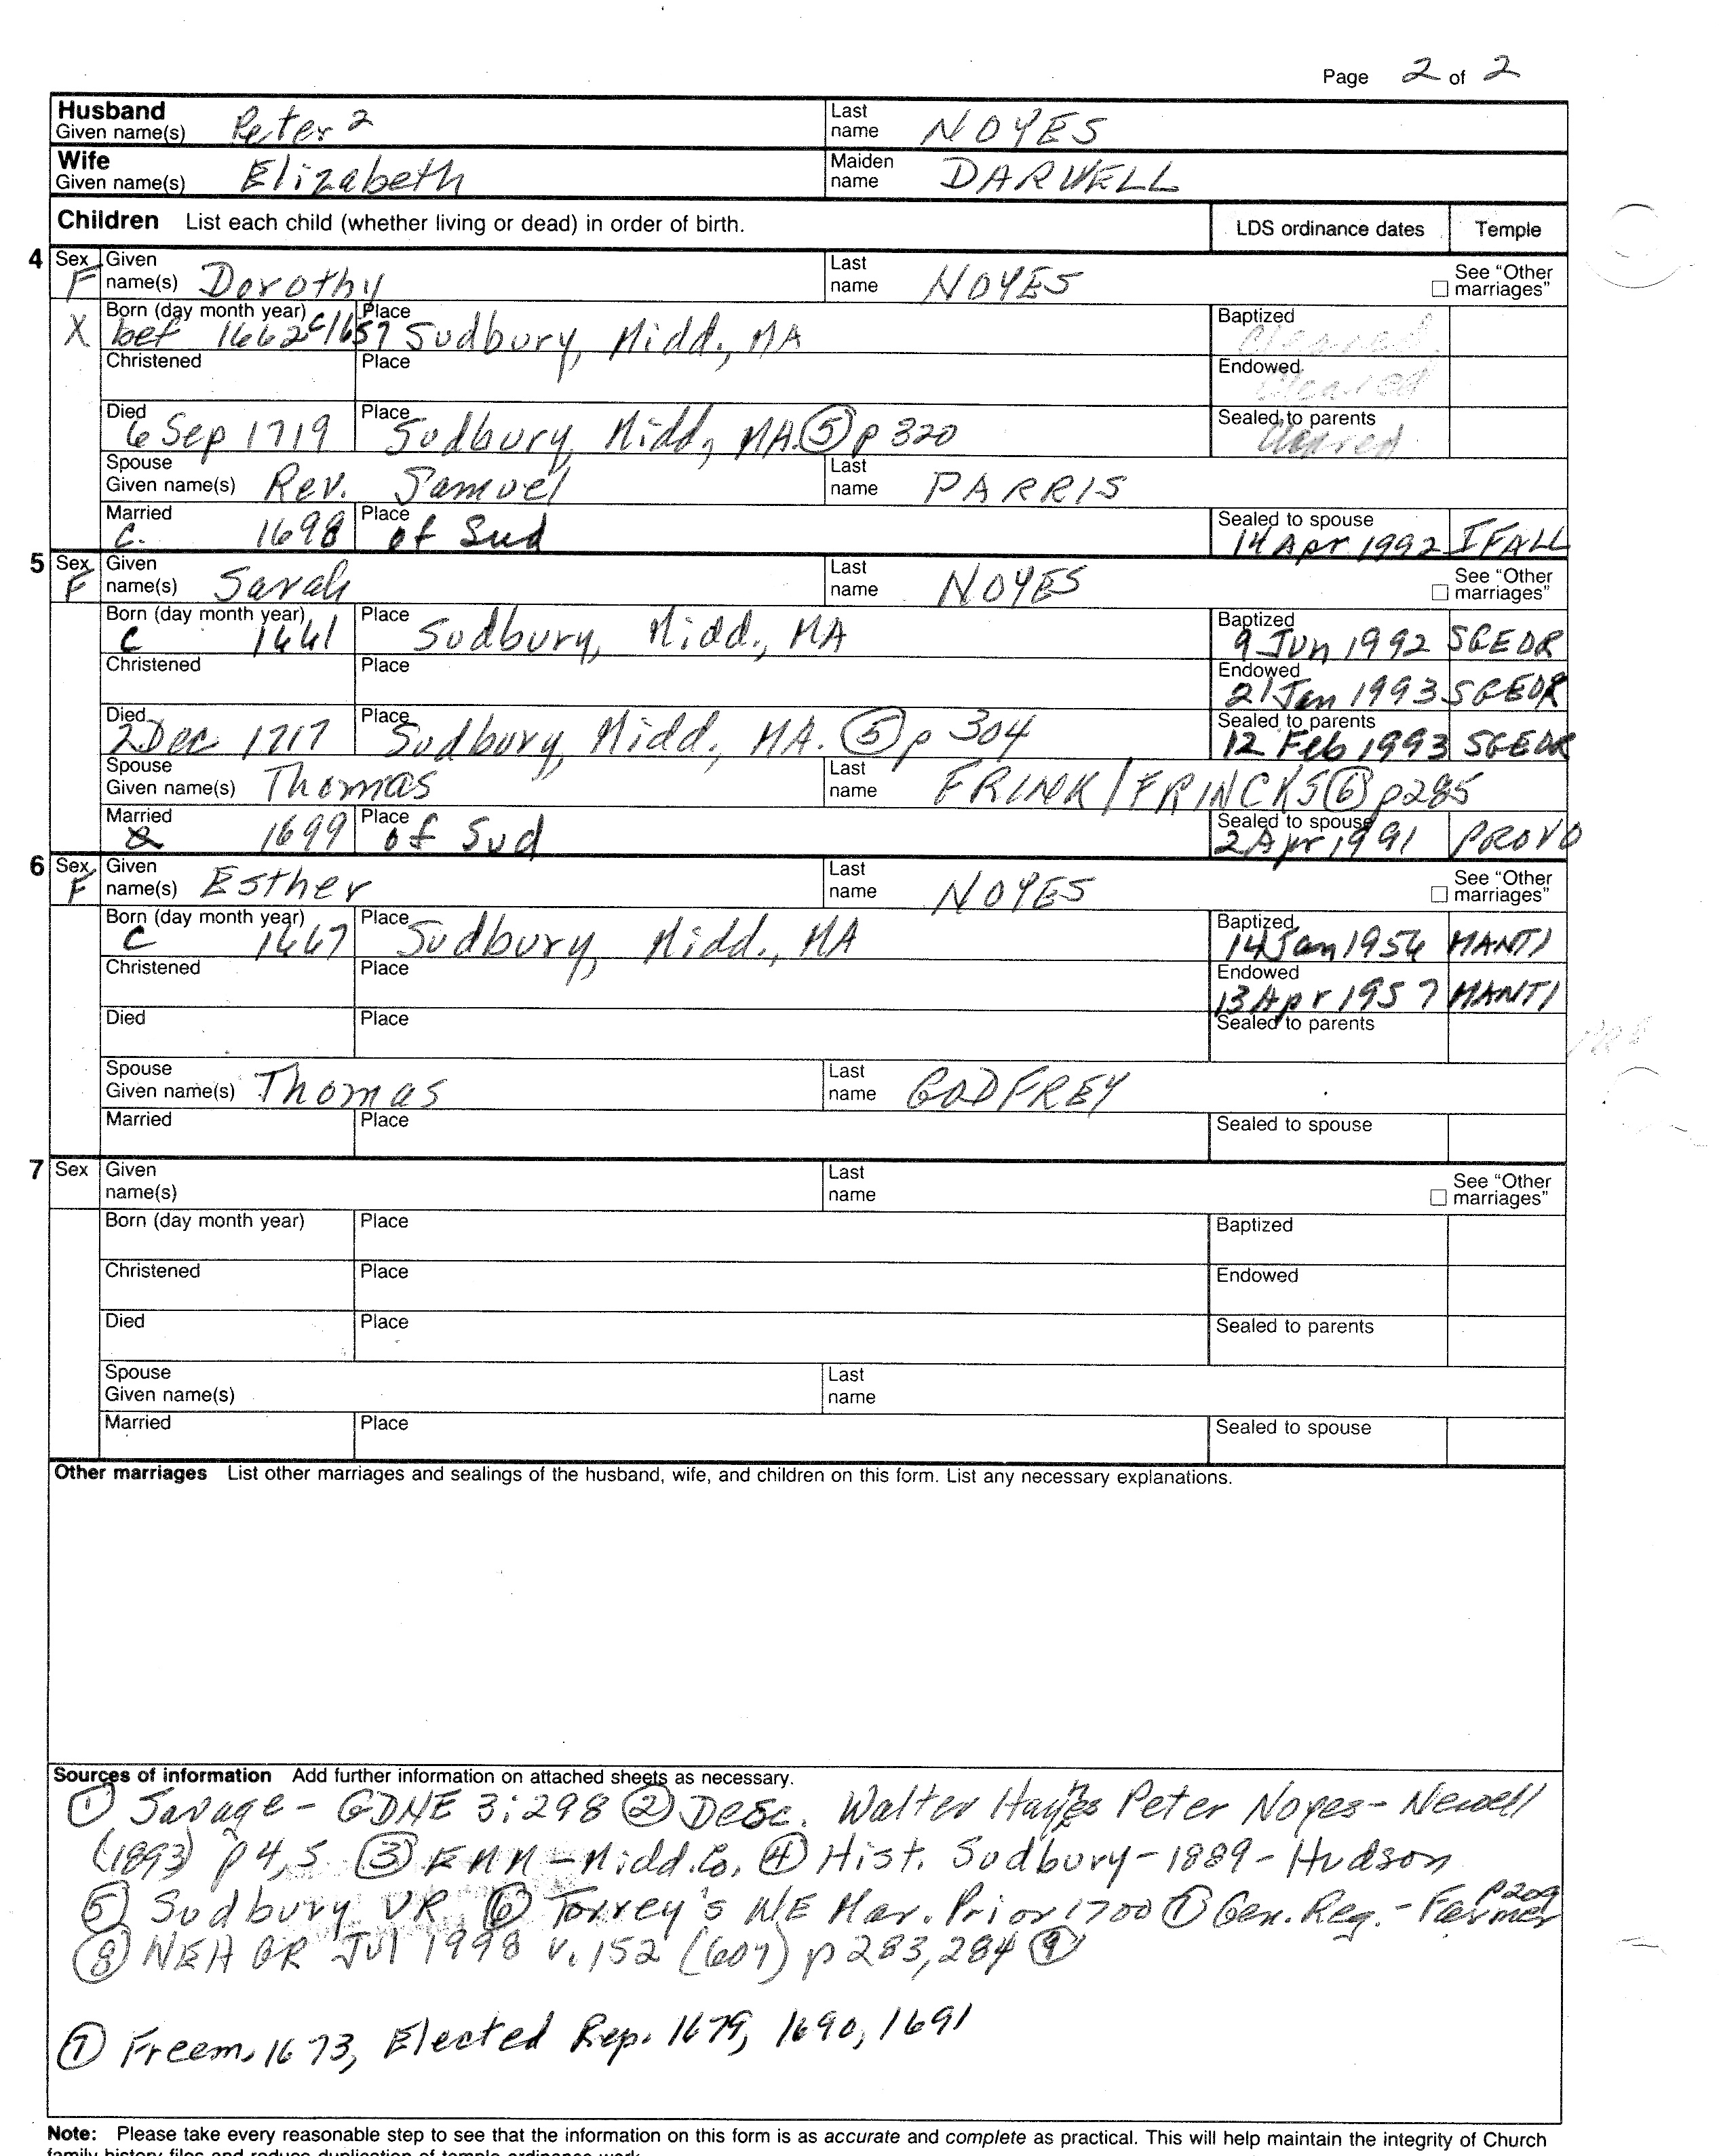 Page 2 of 2
Husband Given name(s) Peter 2 Last name NOYES
Wife Given name(s) Elizabeth Maiden name DARVELL
Children List each child (whether living or dead) in order of birth. LDS ordinance dates Temple
4 Sex F Given name(s) Dorothy Last name NOYES See "Other marriages"
X Born (day month year) bef 1662 c1657 Place Sudbury, Midd., MA Baptized Cleared
Christened Place Endowed Cleared
Died 6 Sep 1719 Place Sudbury, Midd, MA. ⑤ p 320 Sealed to parents Cleared
Spouse Given name(s) Rev. Samuel Last name PARRIS
Married C. 1698 Place of Sud Sealed to spouse 14 Apr 1992 IFALL
5 Sex F Given name(s) Sarah Last name NOYES See "Other marriages"
Born (day month year) C 1661 Place Sudbury, Midd., MA Baptized 9 Jun 1992 SGEOR
Christened Place Endowed 21 Jan 1993 SGEOR
Died 2 Dec 1717 Place Sudbury, Midd., MA. ⑤ p 304 Sealed to parents 12 Feb 1993 SGEOR
Spouse Given name(s) Thomas Last name FRINK/FRINCKS ⑥ p285
Married 1699 Place of Sud Sealed to spouse 2 Apr 1991 PROVO
6 Sex F Given name(s) Esther Last name NOYES See "Other marriages"
Born (day month year) C 1667 Place Sudbury, Midd., MA Baptized 14 Jan 1956 MANTI
Christened Place Endowed 13 Apr 1957 MANTI
Died Place Sealed to parents
Spouse Given name(s) Thomas Last name GODFREY
Married Place Sealed to spouse
7 Sex Given name(s) Last name See "Other marriages"
Born (day month year) Place Baptized
Christened Place Endowed
Died Place Sealed to parents
Spouse Given name(s) Last name
Married Place Sealed to spouse
Other marriages List other marriages and sealings of the husband, wife, and children on this form. List any necessary explanations.
Sources of information Add further information on attached sheets as necessary.
① Savage - GDNE 3:298 ② Desc. Walter Haynes Peter Noyes - Newell
(1893) p 4,5 ③ EMM - Midd. Co. ④ Hist. Sudbury - 1889 - Hudson
⑤ Sudbury VR ⑥ Torrey's NE Mar. Prior 1700 ⑦ Gen. Reg. - Farmer p209
⑧ NEHGR Jul 1998 v. 152 (607) p 283, 284 ⑨
⑦ Freem. 1673, Elected Rep. 1679, 1690, 1691
Note: Please take every reasonable step to see that the information on this form is as accurate and complete as practical. This will help maintain the integrity of Church
family history files and reduce duplication of temple ordinance work.